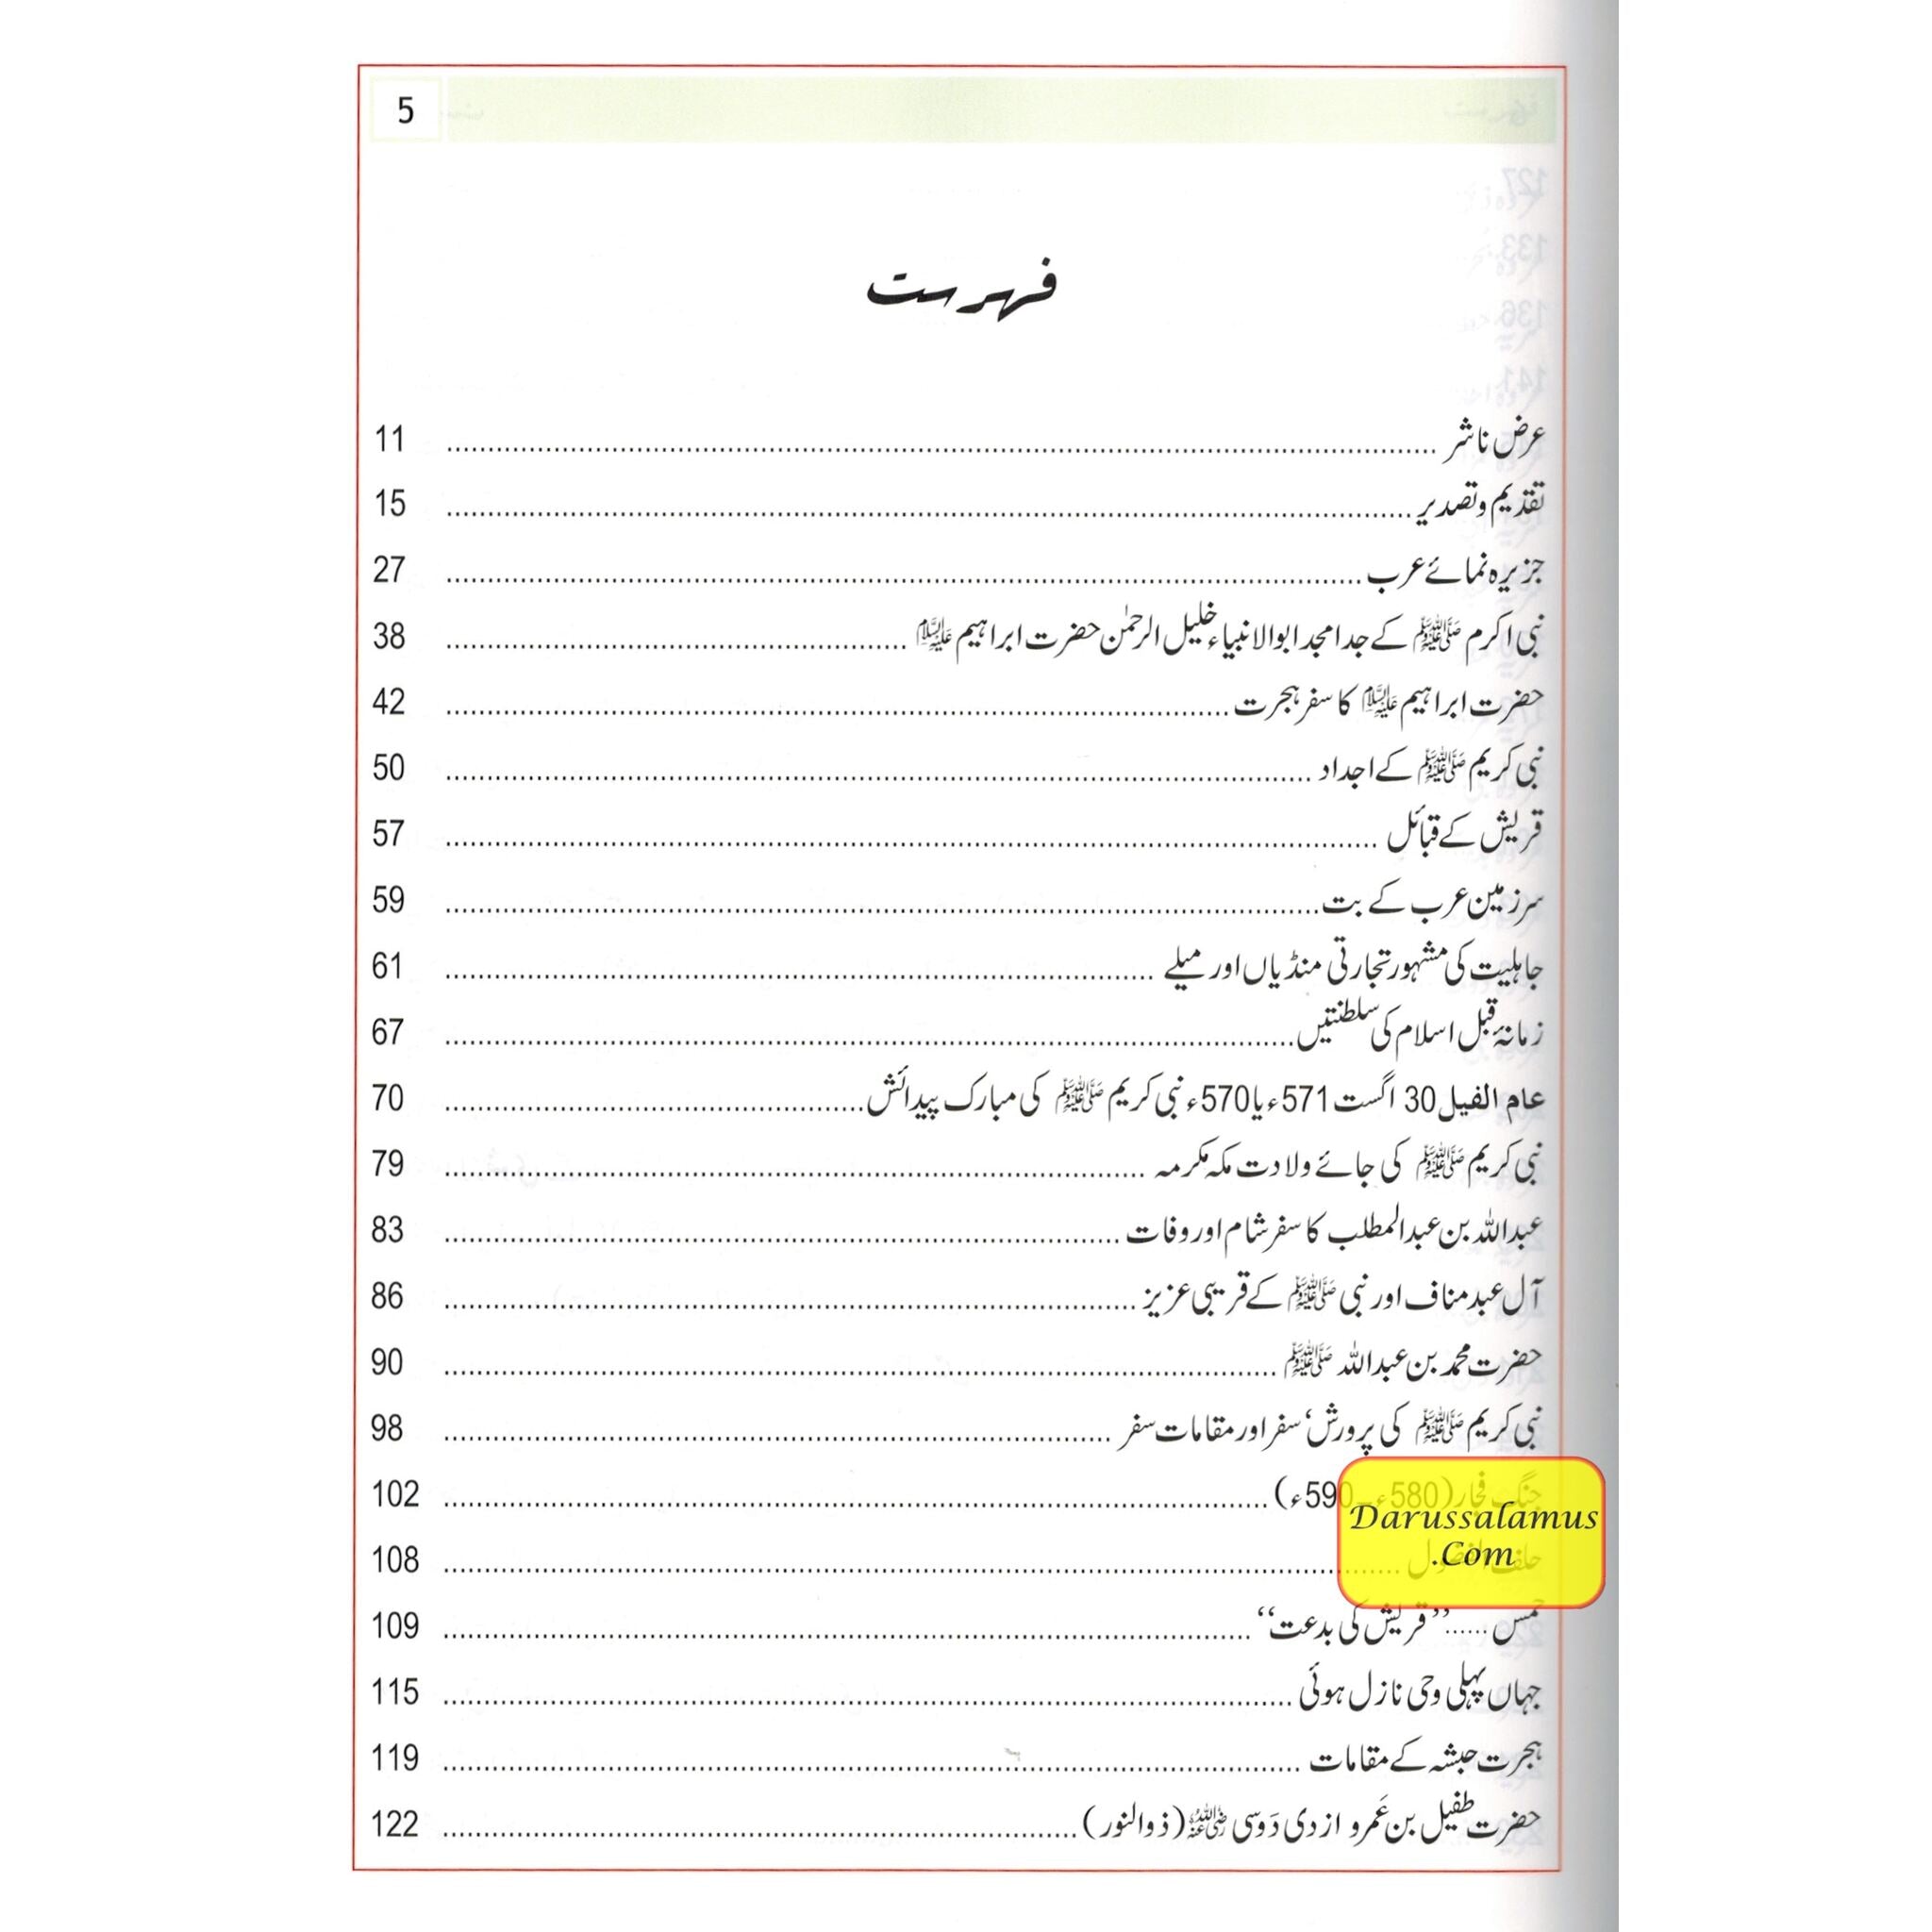 5
فہرست
عرض ناشر ........ 11
تقدیم و تصدیر ........ 15
جزیرہ نمائے عرب ........ 27
نبی اکرم ﷺ کے جد امجد ابوالانبیاء خلیل الرحمٰن حضرت ابراہیم علیہ السلام ........ 38
حضرت ابراہیم علیہ السلام کا سفر ہجرت ........ 42
نبی کریم ﷺ کے اجداد ........ 50
قریش کے قبائل ........ 57
سرزمین عرب کے بت ........ 59
جاہلیت کی مشہور تجارتی منڈیاں اور میلے ........ 61
زمانۂ قبل اسلام کی سلطنتیں ........ 67
عام الفیل 30 اگست 571ء یا 570ء نبی کریم ﷺ کی مبارک پیدائش ........ 70
نبی کریم ﷺ کی جائے ولادت مکہ مکرمہ ........ 79
عبداللہ بن عبدالمطلب کا سفر شام اور وفات ........ 83
آل عبد مناف اور نبی ﷺ کے قریبی عزیز ........ 86
حضرت محمد بن عبداللہ ﷺ ........ 90
نبی کریم ﷺ کی پرورش‘ سفر اور مقامات سفر ........ 98
جنگ فجار (580ء – 590ء) ........ 102
حلف الفضول ........ 108
حمس ...... ’’قریش کی بدعت‘‘ ........ 109
جہاں پہلی وحی نازل ہوئی ........ 115
ہجرت حبشہ کے مقامات ........ 119
حضرت طفیل بن عَمرو ازدی دَوسی رضی اللہ عنہ (ذوالنور) ........ 122
Darussalamus
.Com